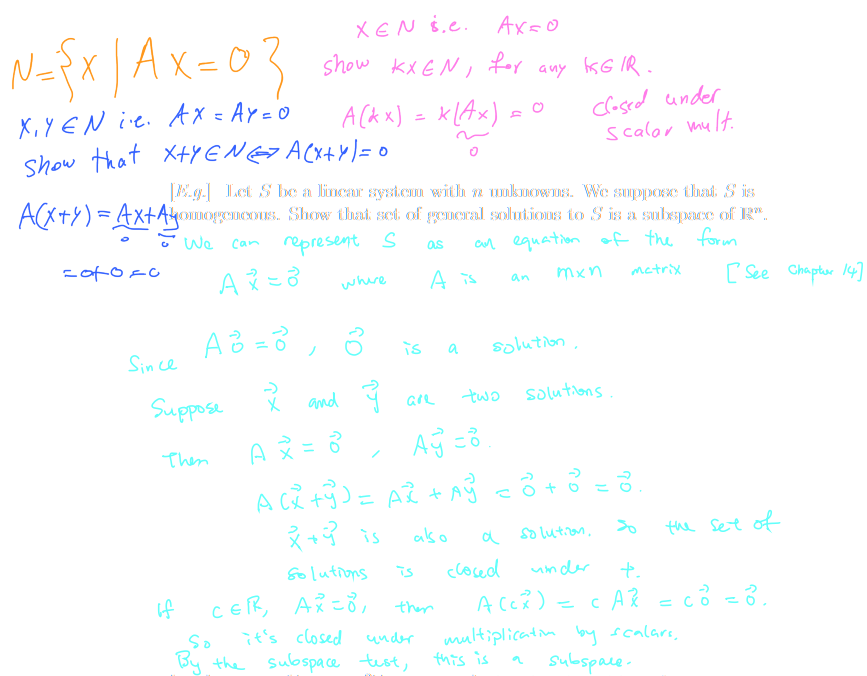 N = {x | Ax = 0}
x ∈ N i.e. Ax = 0
show kx ∈ N, for any k ∈ ℝ.
A(kx) = k(Ax) = 0
0
closed under
scalar mult.
x, y ∈ N i.e. Ax = Ay = 0
show that x+y ∈ N ⟺ A(x+y) = 0
A(x+y) = Ax + Ay
0 0
= 0+0 = 0
[E.g.] Let S be a linear system with n unknowns. We suppose that S is
homogeneous. Show that set of general solutions to S is a subspace of ℝⁿ.
We can represent S as an equation of the form
A x⃗ = 0⃗ where A is an m×n matrix [See Chapter 14]
Since A 0⃗ = 0⃗, 0⃗ is a solution.
Suppose x⃗ and y⃗ are two solutions.
Then A x⃗ = 0⃗, A y⃗ = 0⃗.
A(x⃗ + y⃗) = A x⃗ + A y⃗ = 0⃗ + 0⃗ = 0⃗.
x⃗ + y⃗ is also a solution. So the set of
solutions is closed under +.
If c ∈ ℝ, A x⃗ = 0⃗, then A(c x⃗) = c A x⃗ = c 0⃗ = 0⃗.
So it's closed under multiplication by scalars.
By the subspace test, this is a subspace.